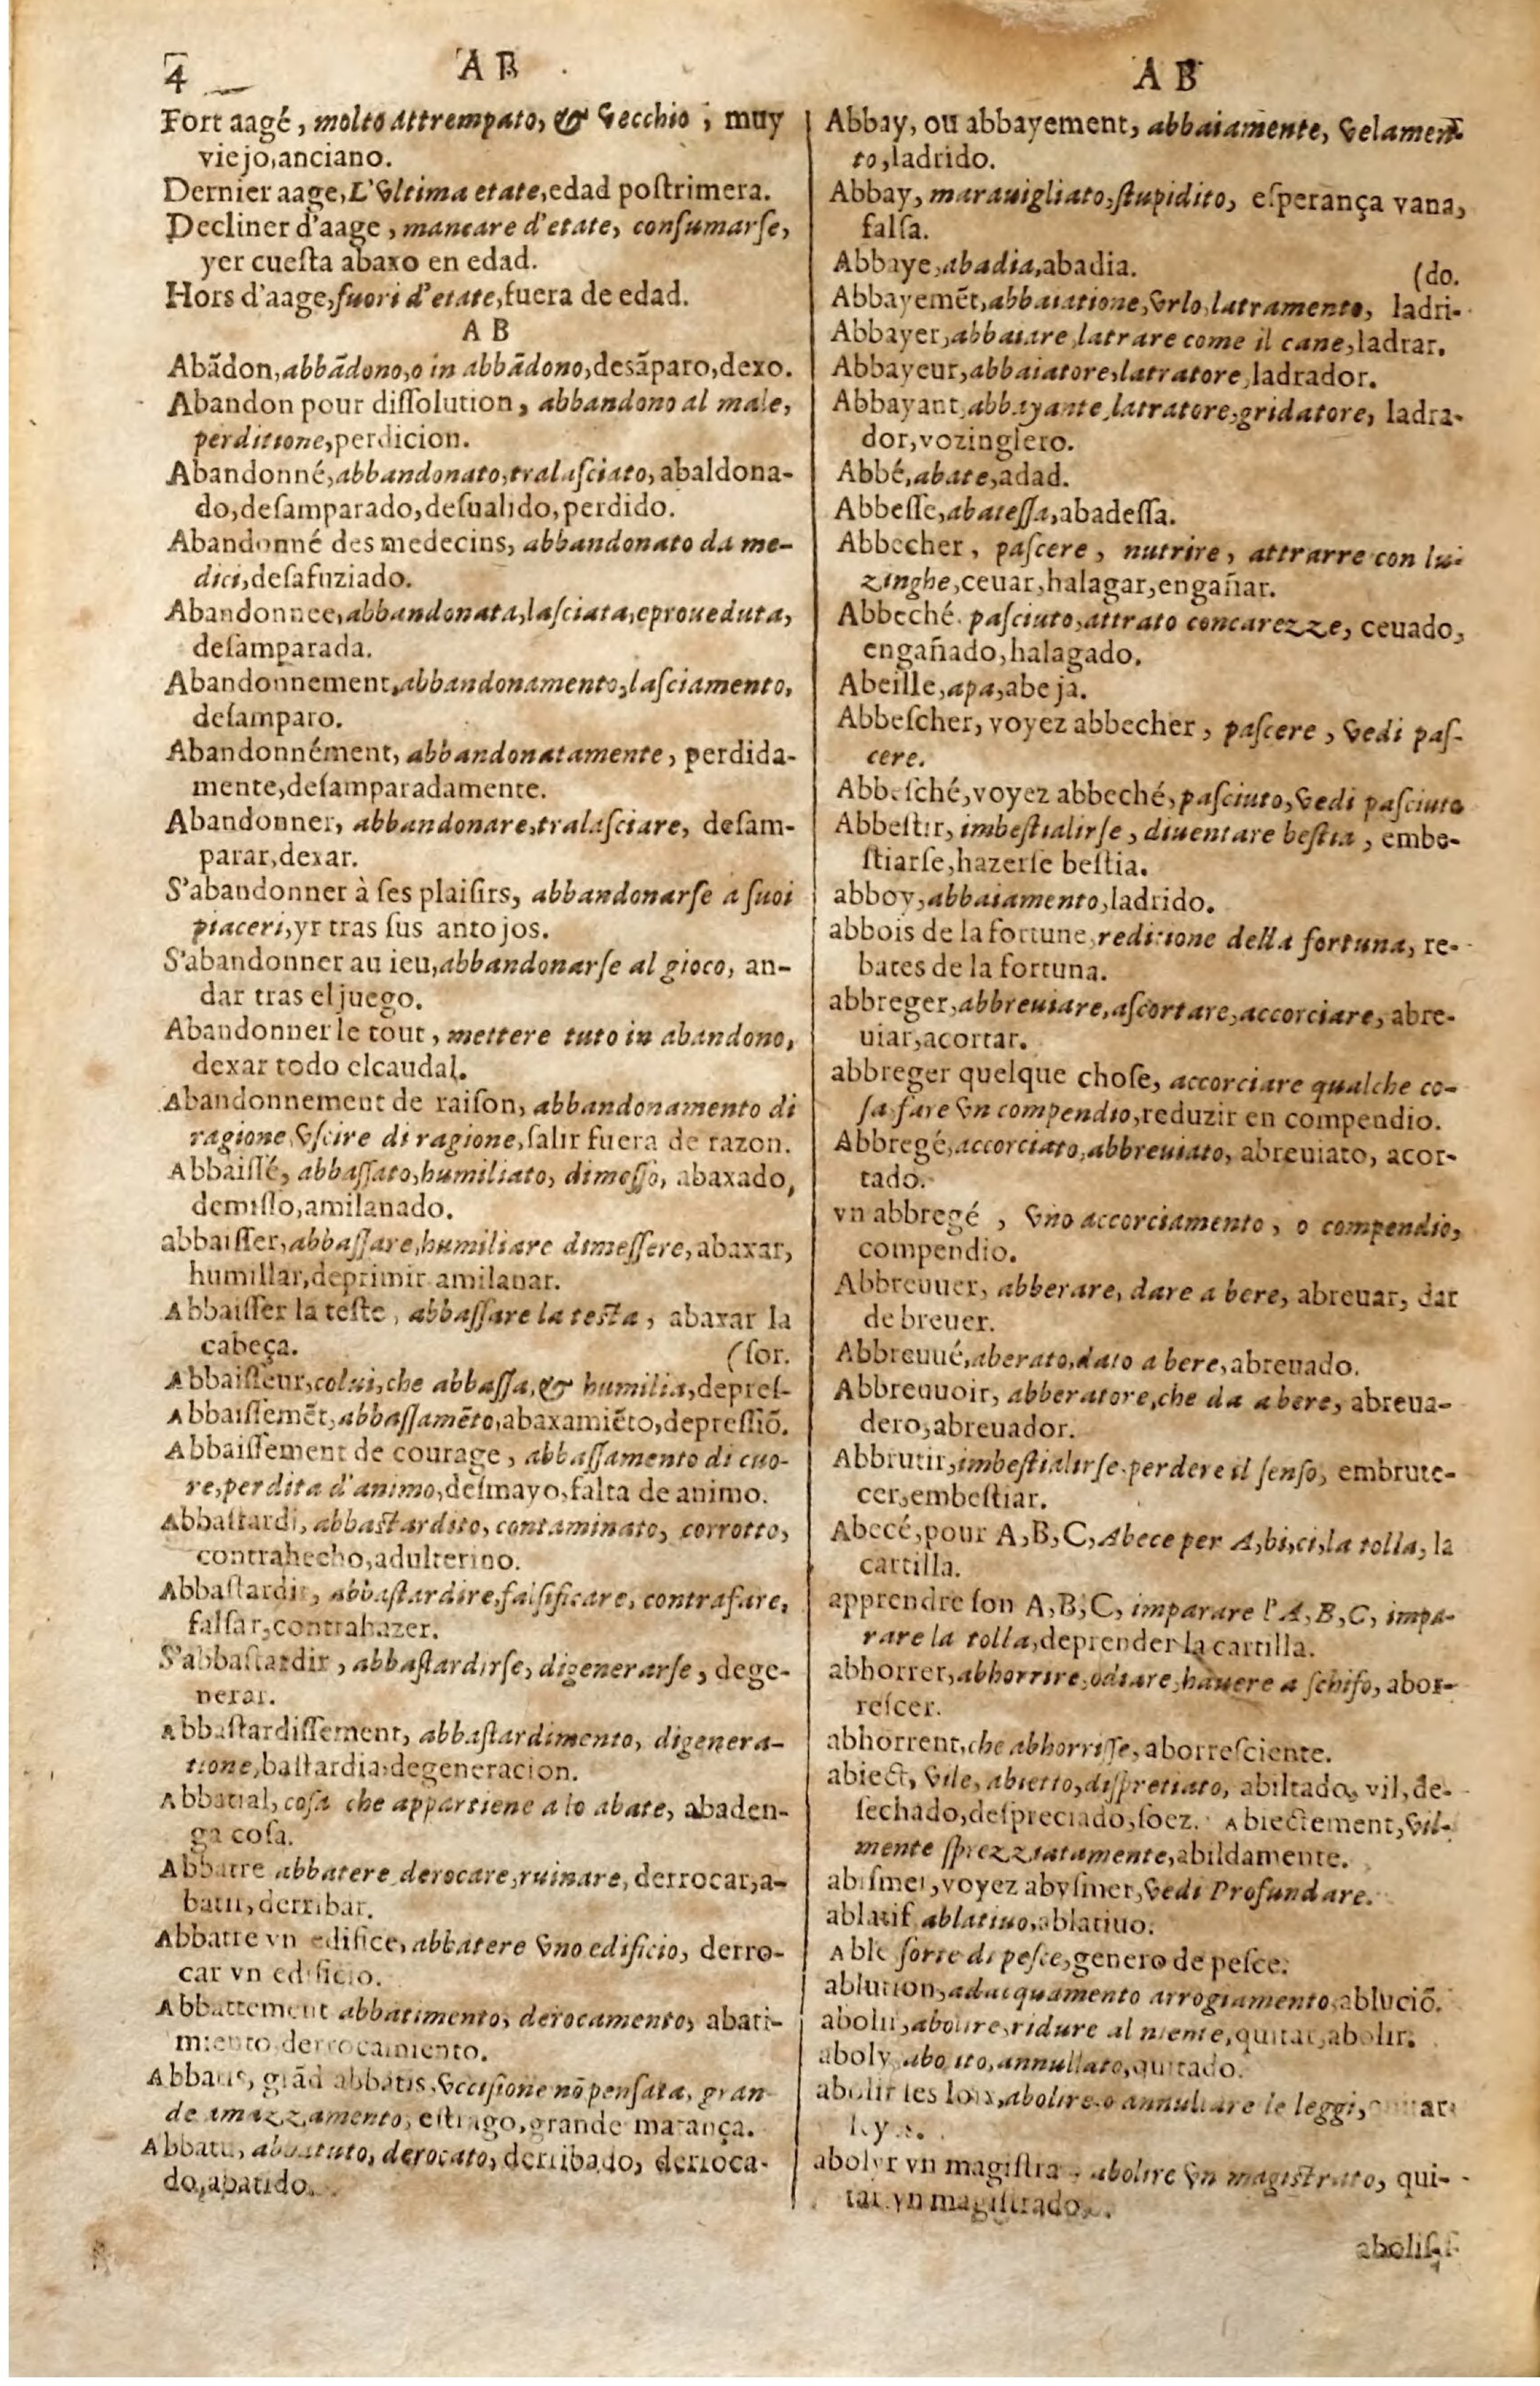 4
A B
Fort aagé, molto attrempato, & vecchio, muy
viejo, anciano.
Dernier aage, L'vltima etate, edad poſtrimera.
Decliner d'aage, mancare d'etate, conſumarſe,
yer cueſta abaxo en edad.
Hors d'aage, fuori d'etate, fuera de edad.
A B
Abãdon, abbãdono, o in abbãdono, desãparo, dexo.
Abandon pour diſſolution, abbandono al male,
perditione, perdicion.
Abandonné, abbandonato, tralaſciato, abaldona-
do, deſamparado, deſualido, perdido.
Abandonné des medecins, abbandonato da me-
dici, deſafuziado.
Abandonnee, abbandonata, laſciata, eproueduta,
deſamparada.
Abandonnement, abbandonamento, laſciamento,
deſamparo.
Abandonnément, abbandonatamente, perdida-
mente, deſamparadamente.
Abandonner, abbandonare, tralaſciare, deſam-
parar, dexar.
S'abandonner à ſes plaiſirs, abbandonarſe a ſuoi
piaceri, yr tras ſus antojos.
S'abandonner au ieu, abbandonarſe al gioco, an-
dar tras el juego.
Abandonner le tout, mettere tuto in abandono,
dexar todo elcaudal.
Abandonnement de raiſon, abbandonamento di
ragione, vſcire di ragione, ſalir fuera de razon.
Abbaiſſé, abbaſſato, humiliato, dimeſſo, abaxado,
demiſſo, amilanado.
abbaiſſer, abbaſſare, humiliare dimeſſere, abaxar,
humillar, deprimir amilanar.
Abbaiſſer la teſte, abbaſſare la teſta, abaxar la
cabeça. (ſor.
Abbaiſſeur, colui, che abbaſſa, & humilia, depreſ-
Abbaiſſemẽt, abbaſſamẽto, abaxamiẽto, depreſſiõ.
Abbaiſſement de courage, abbaſſamento di cuo-
re, perdita d'animo, deſmayo, falta de animo.
Abbaſtardi, abbaſtardito, contaminato, corrotto,
contrahecho, adulterino.
Abbaſtardir, abbaſtardire, falſificare, contrafare,
falſar, contrahazer.
S'abbaſtardir, abbaſtardirſe, digenerarſe, dege-
nerar.
Abbaſtardiſſement, abbaſtardimento, digenera-
tione, baſtardia, degeneracion.
Abbatial, coſa che appartiene a lo abate, abaden-
ga coſa.
Abbatre abbatere, derocare, ruinare, derrocar, a-
batir, derribar.
Abbatre vn edifice, abbatere vno edificio, derro-
car vn edificio.
Abbattement abbatimento, derocamento, abati-
miento, derrocamiento.
Abbatis, grãd abbatis, vcciſione nõ penſata, gran
de amazzamento, eſtrago, grande matança.
Abbatu, abbatuto, derocato, derribado, derroca-
do, abatido.
A B
Abbay, ou abbayement, abbaiamente, velamen-
to, ladrido.
Abbay, marauigliato, ſtupidito, eſperança vana,
falſa.
Abbaye, abadia, abadia. (do.
Abbayemẽt, abbaiatione, vrlo, latramento, ladri-
Abbayer, abbaiare, latrare come il cane, ladrar.
Abbayeur, abbaiatore, latratore, ladrador.
Abbayant, abbayante, latratore, gridatore, ladra-
dor, vozinglero.
Abbé, abate, adad.
Abbeſſe, abateſſa, abadeſſa.
Abbecher, paſcere, nutrire, attrarre con lu-
zinghe, ceuar, halagar, engañar.
Abbeché. paſciuto, attrato con carezze, ceuado,
engañado, halagado.
Abeille, apa, abeja.
Abbeſcher, voyez abbecher, paſcere, vedi paſ-
cere.
Abbeſché, voyez abbeché, paſciuto, vedi paſciuto
Abbeſtir, imbeſtialirſe, diuentare beſtia, embe-
ſtiarſe, hazerſe beſtia.
abboy, abbaiamento, ladrido.
abbois de la fortune, reditione della fortuna, re-
bates de la fortuna.
abbreger, abbreuiare, aſcortare, accorciare, abre-
uiar, acortar.
abbreger quelque choſe, accorciare qualche co-
ſa fare vn compendio, reduzir en compendio.
Abbregé, accorciato, abbreuiato, abreuiato, acor-
tado.
vn abbregé, vno accorciamento, o compendio,
compendio.
Abbreuuer, abberare, dare a bere, abreuar, dar
de breuer.
Abbreuué, aberato, dato a bere, abreuado.
Abbreuuoir, abberatore, che da a bere, abreua-
dero, abreuador.
Abbrutir, imbeſtialirſe perdere il ſenſo, embrute-
cer, embeſtiar.
Abecé, pour A, B, C, Abece per A, bi, ci, la tolla, la
cartilla.
apprendre ſon A, B, C, imparare l'A, B, C, impa-
rare la tolla, deprender la cartilla.
abhorrer, abhorrire, odiare, hauere a ſchifo, abor-
reſcer.
abhorrent, che abhorriſſe, aborreſciente.
abiect, vile, abietto, diſpretiato, abiltado, vil, de-
ſechado, deſpreciado, ſoez. Abiectement, vil-
mente ſprezzatamente, abildamente.
abiſmer, voyez abyſmer, vedi Profundare.
ablatif ablatiuo, ablatiuo.
Able ſorte di peſce, genero de peſce.
ablution, adacquamento arrogiamento, abluciõ.
abolir, abolire, ridure al niente, quitar, abolir.
aboly, abolito, annullato, quitado.
abolir les loix, abolire o annullare le leggi, quitar
leyes.
abolyr vn magiſtra, abolire vn magiſtrato, qui-
tar vn magiſtrado.
aboliſſ